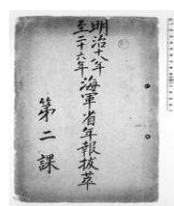 明治十八年
至二十六年
海軍省年報抜萃
第二課